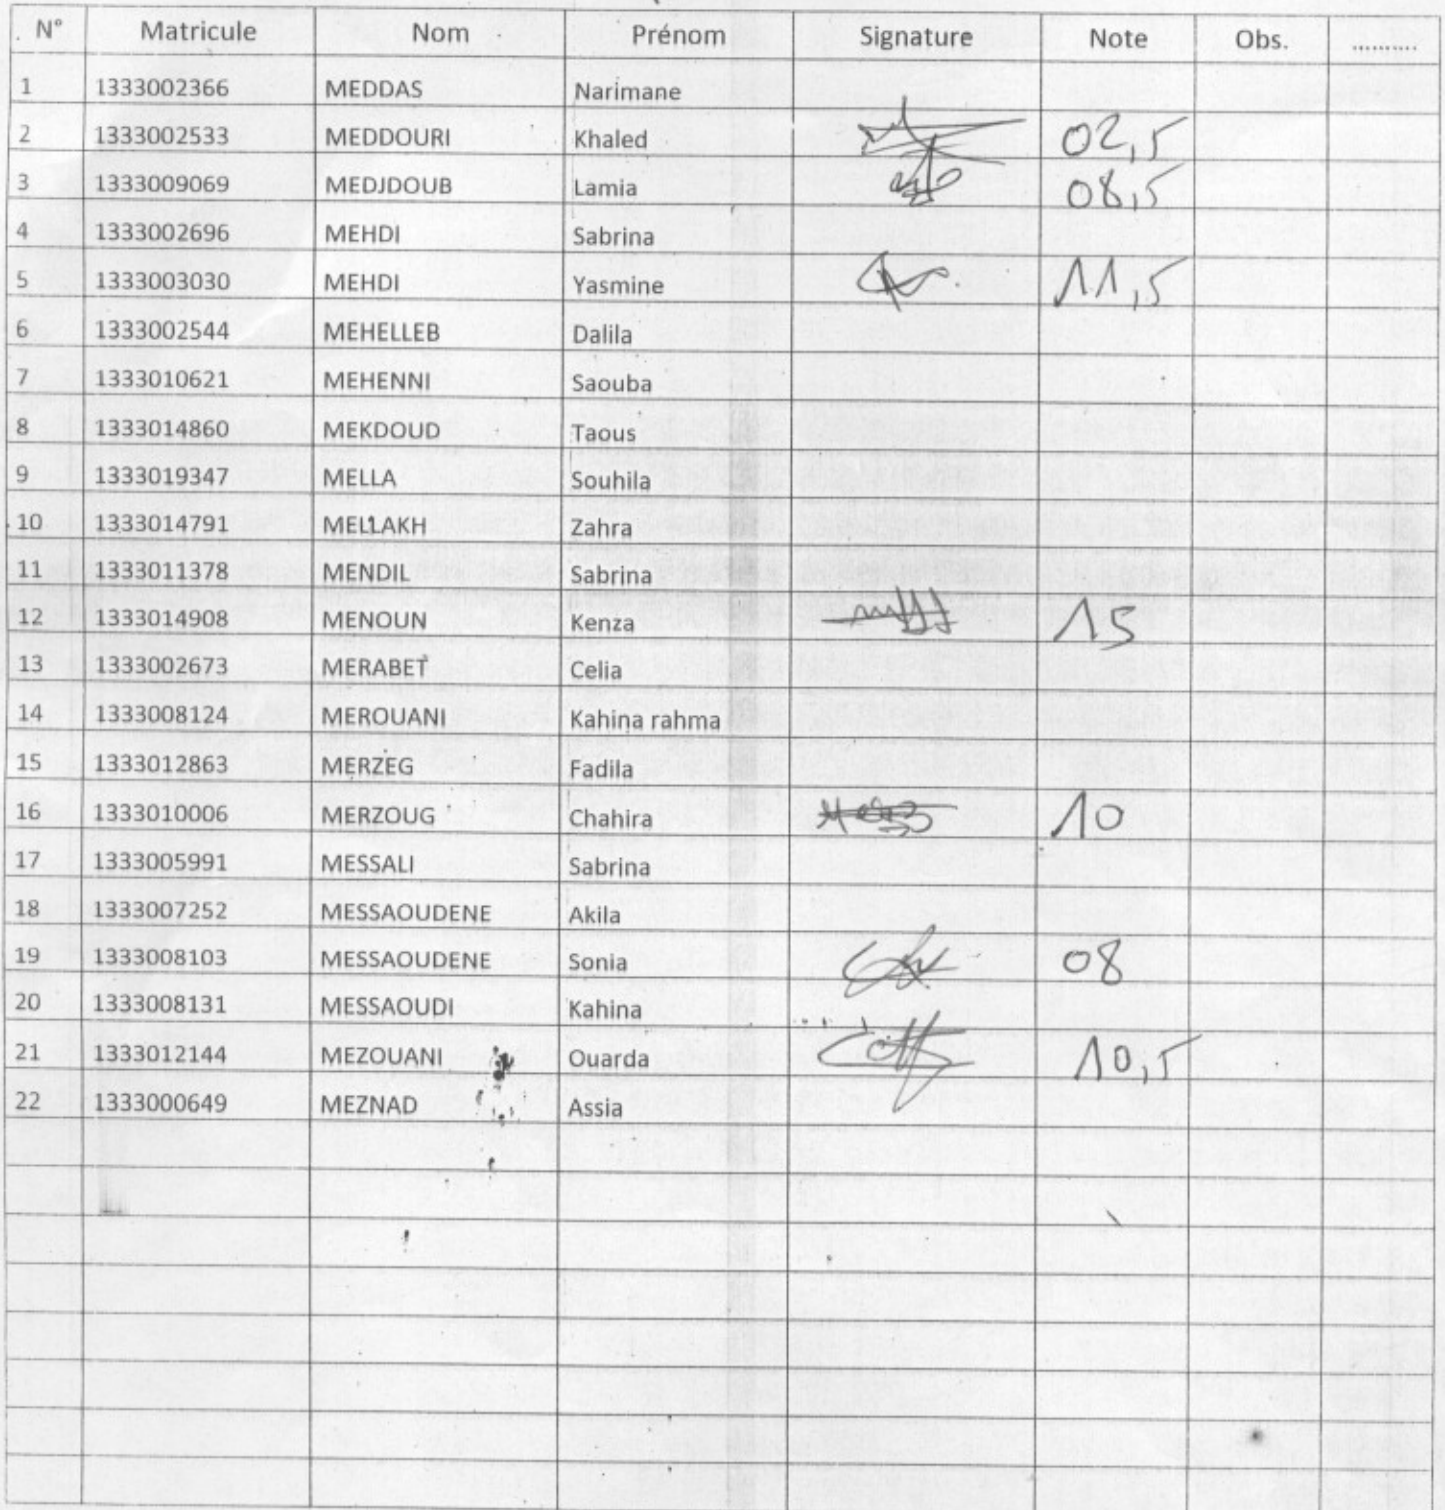 N° Matricule Nom Prénom Signature Note Obs. ..........
1 1333002366 MEDDAS Narimane
2 1333002533 MEDDOURI Khaled 02,5
3 1333009069 MEDJDOUB Lamia 08,5
4 1333002696 MEHDI Sabrina
5 1333003030 MEHDI Yasmine 11,5
6 1333002544 MEHELLEB Dalila
7 1333010621 MEHENNI Saouba
8 1333014860 MEKDOUD Taous
9 1333019347 MELLA Souhila
10 1333014791 MELLAKH Zahra
11 1333011378 MENDIL Sabrina
12 1333014908 MENOUN Kenza 15
13 1333002673 MERABET Celia
14 1333008124 MEROUANI Kahina rahma
15 1333012863 MERZEG Fadila
16 1333010006 MERZOUG Chahira 10
17 1333005991 MESSALI Sabrina
18 1333007252 MESSAOUDENE Akila
19 1333008103 MESSAOUDENE Sonia 08
20 1333008131 MESSAOUDI Kahina
21 1333012144 MEZOUANI Ouarda 10,5
22 1333000649 MEZNAD Assia